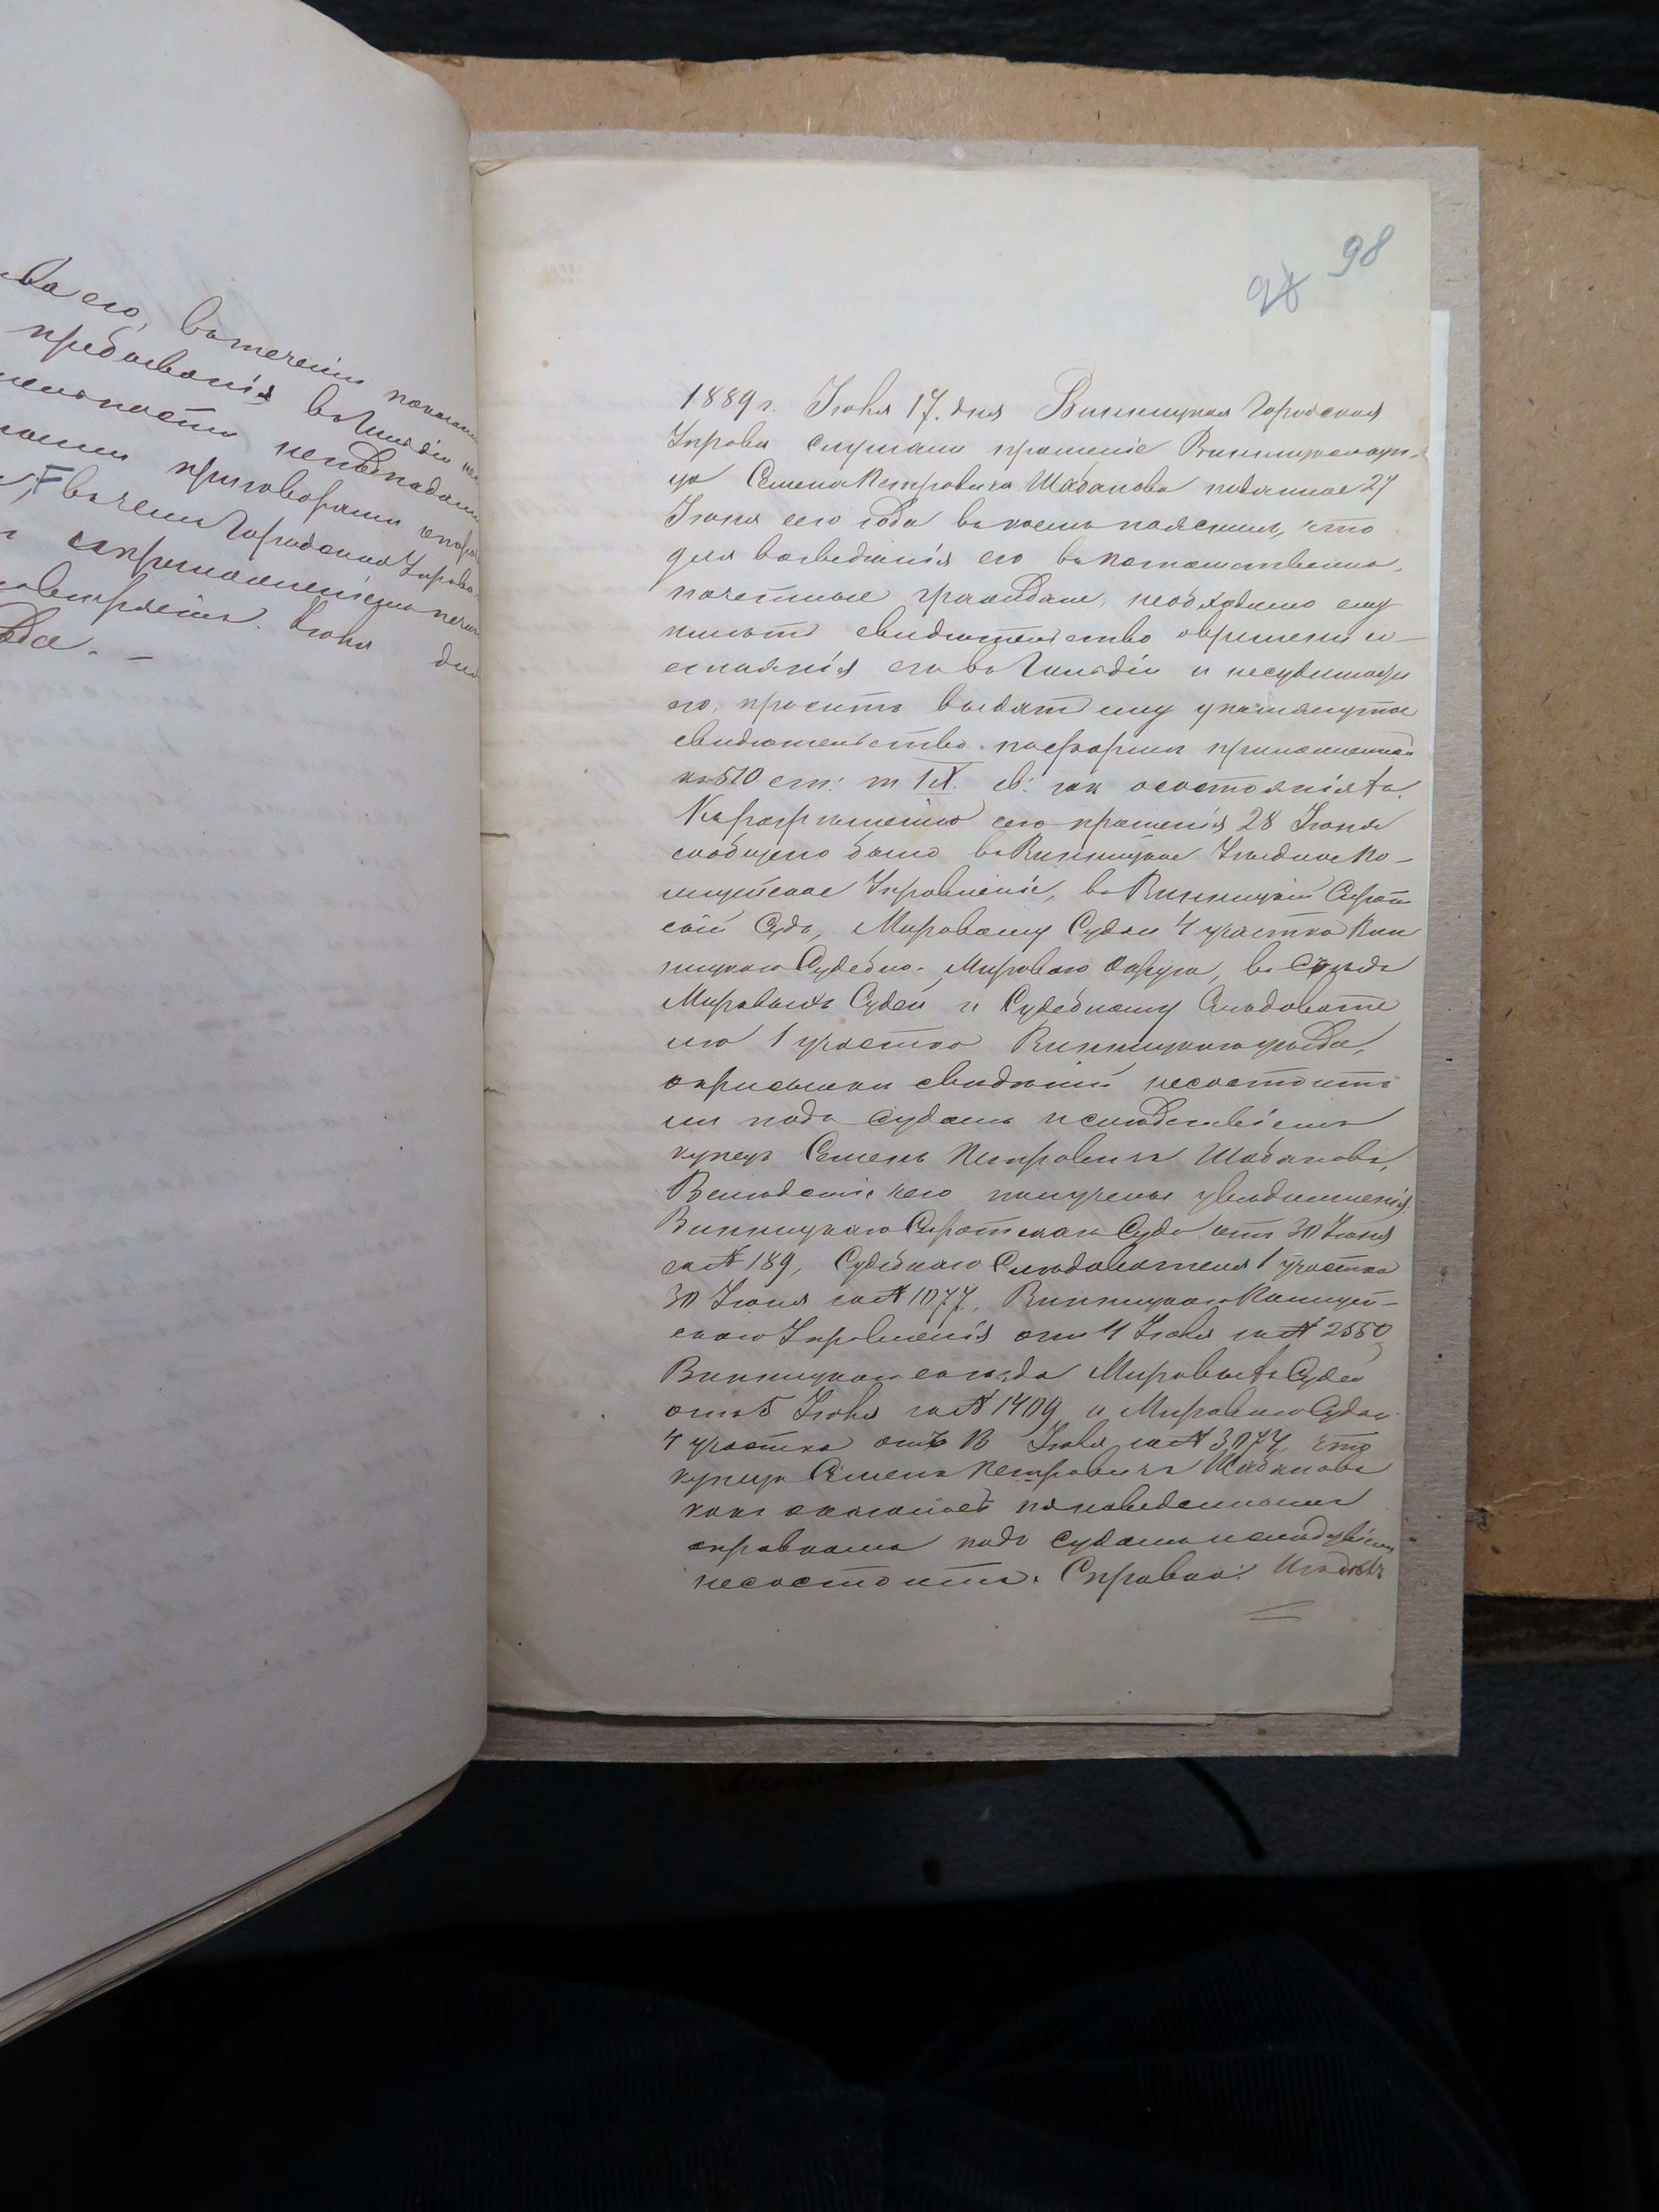 ва его, въ теченіи
пребыванія въ Гильдіи
приговорами
въ чемъ Городская Управа
съ приложеніемъ
Іюля дня
98
1889 г. Іюля 17. дня Винницкая Городская
Управа слушали прошеніе Винницкаго куп-
ца Семена Петровича Шабанова поданное 27
Іюня сего года въ коемъ пояснилъ, что
для возведенія его въ потомственно,
почетные граждане, необходимо ему
имѣть свидѣтельство о времени со-
стоянія его въ Гильдіи и несудимости
его, проситъ выдать ему упомянутое
свидѣтельство по формѣ приложенной
къ 510 ст: т IX. св: зак о состояніяхъ.
Къ разрѣшенію сего прошенія 28 Іюня
сообщено было въ Винницкое Уѣздное По-
лицейское Управленіе, въ Винницкій Сирот
скій Судъ, Мировому Судьи 4 участка Вин
ницкаго Судебно-Мироваго Округа, въ Съѣздъ
Мировыхъ Судей и Судебному Слѣдовате
лю 1 участка Винницкаго уѣзда,
о присылки свѣдѣній несостоитъ
ли подъ судомъ и слѣдствіемъ
купецъ Семенъ Петровичъ Шабановъ,
Вслѣдствіе чего получены увѣдомленія
Винницкаго Сиротскаго Суда отъ 30 Іюня
за № 189, Судебнаго Слѣдователя 1 участка
30 Іюня за № 1077, Винницкаго Полицей-
скаго Управленія отъ 4 Іюля за № 2550,
Винницкаго съѣзда Мировыхъ Судей
отъ 5 Іюля за № 1409 и Мироваго Судьи
4 участка отъ Іюля за № 3074, что
купецъ Семенъ Петровичъ Шабановъ
какъ по наведеннымъ
справкамъ подъ судомъ и слѣдствіемъ
несостоитъ. Справка: